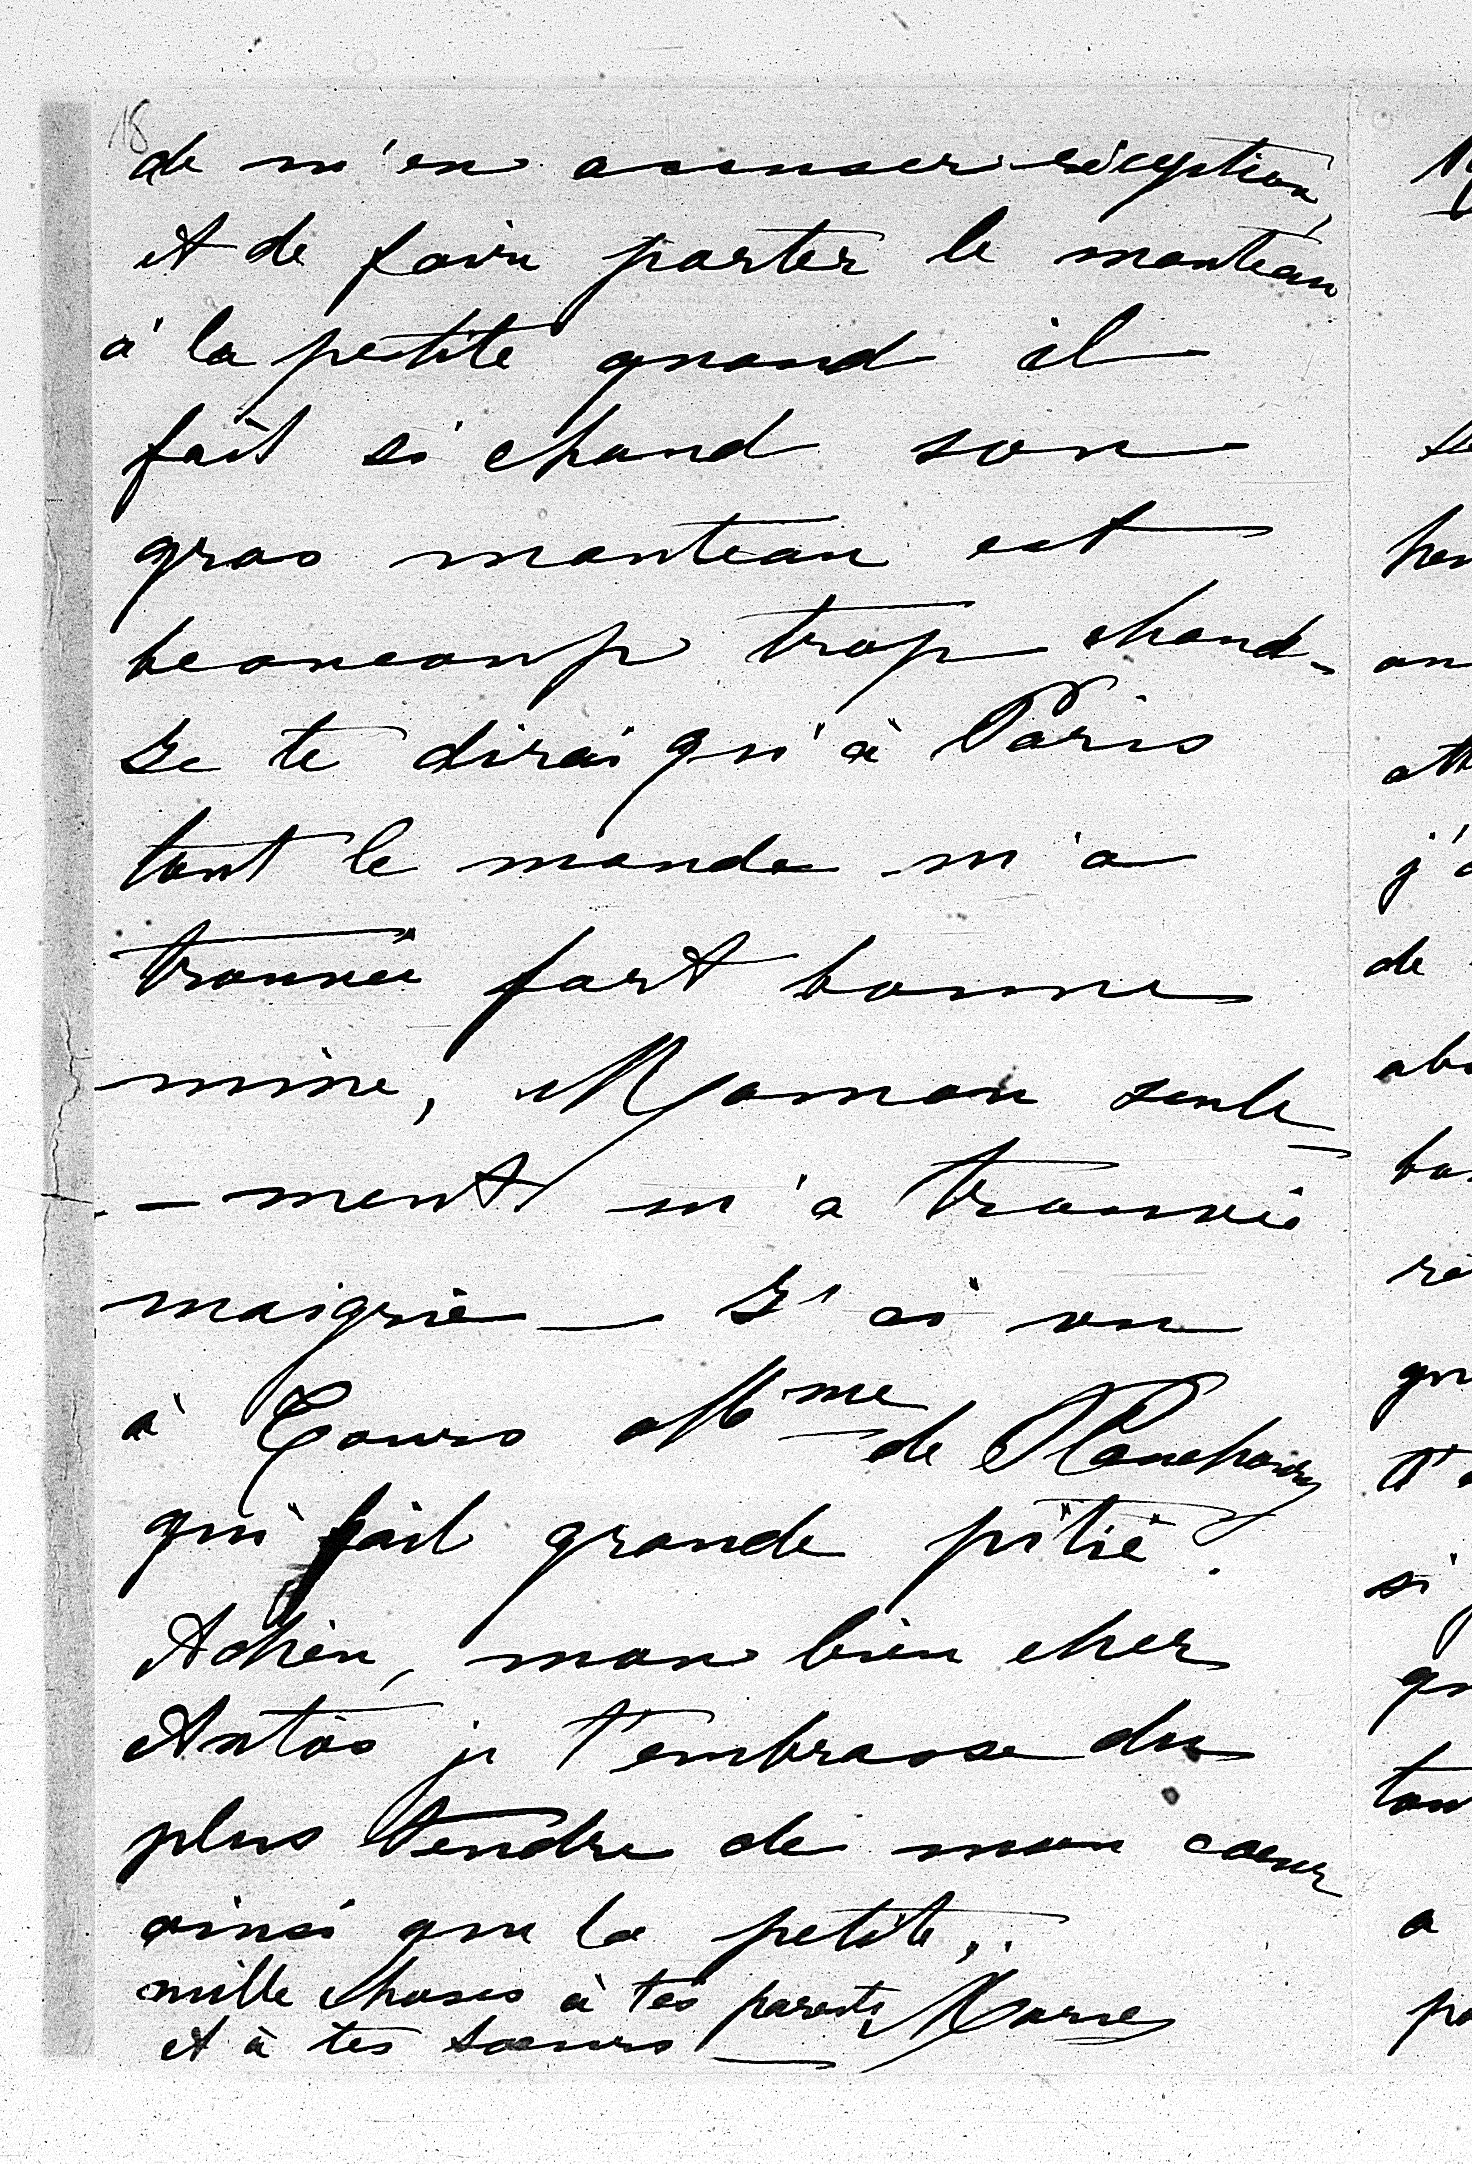 18
de m'en accuser réception,
et de faire porter le manteau
à la petite quand il
fait si chaud son
gros manteau est
beaucoup trop chaud -
Je te dirai qu'à Paris
tout le monde m'a
trouvée fort bonne
mine, Maman seule-
- ment m'a trouvée
maigrie — J'ai vu
à Tours Mme de
qui fait grande pitié.
Adieu, mon bien cher
Antos je t'embrasse du
plus tendre de mon coeur
ainsi que la petite,.
mille choses à tes parents Marie
et à tes soeurs —